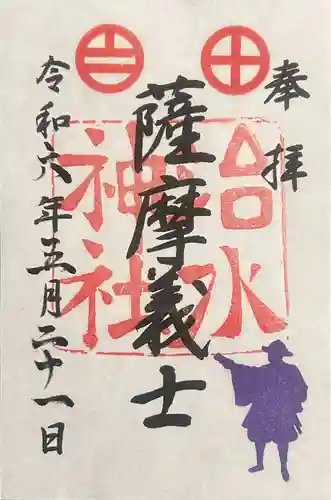 奉拝
薩摩義士
治水神社
令和六年五月二十一日